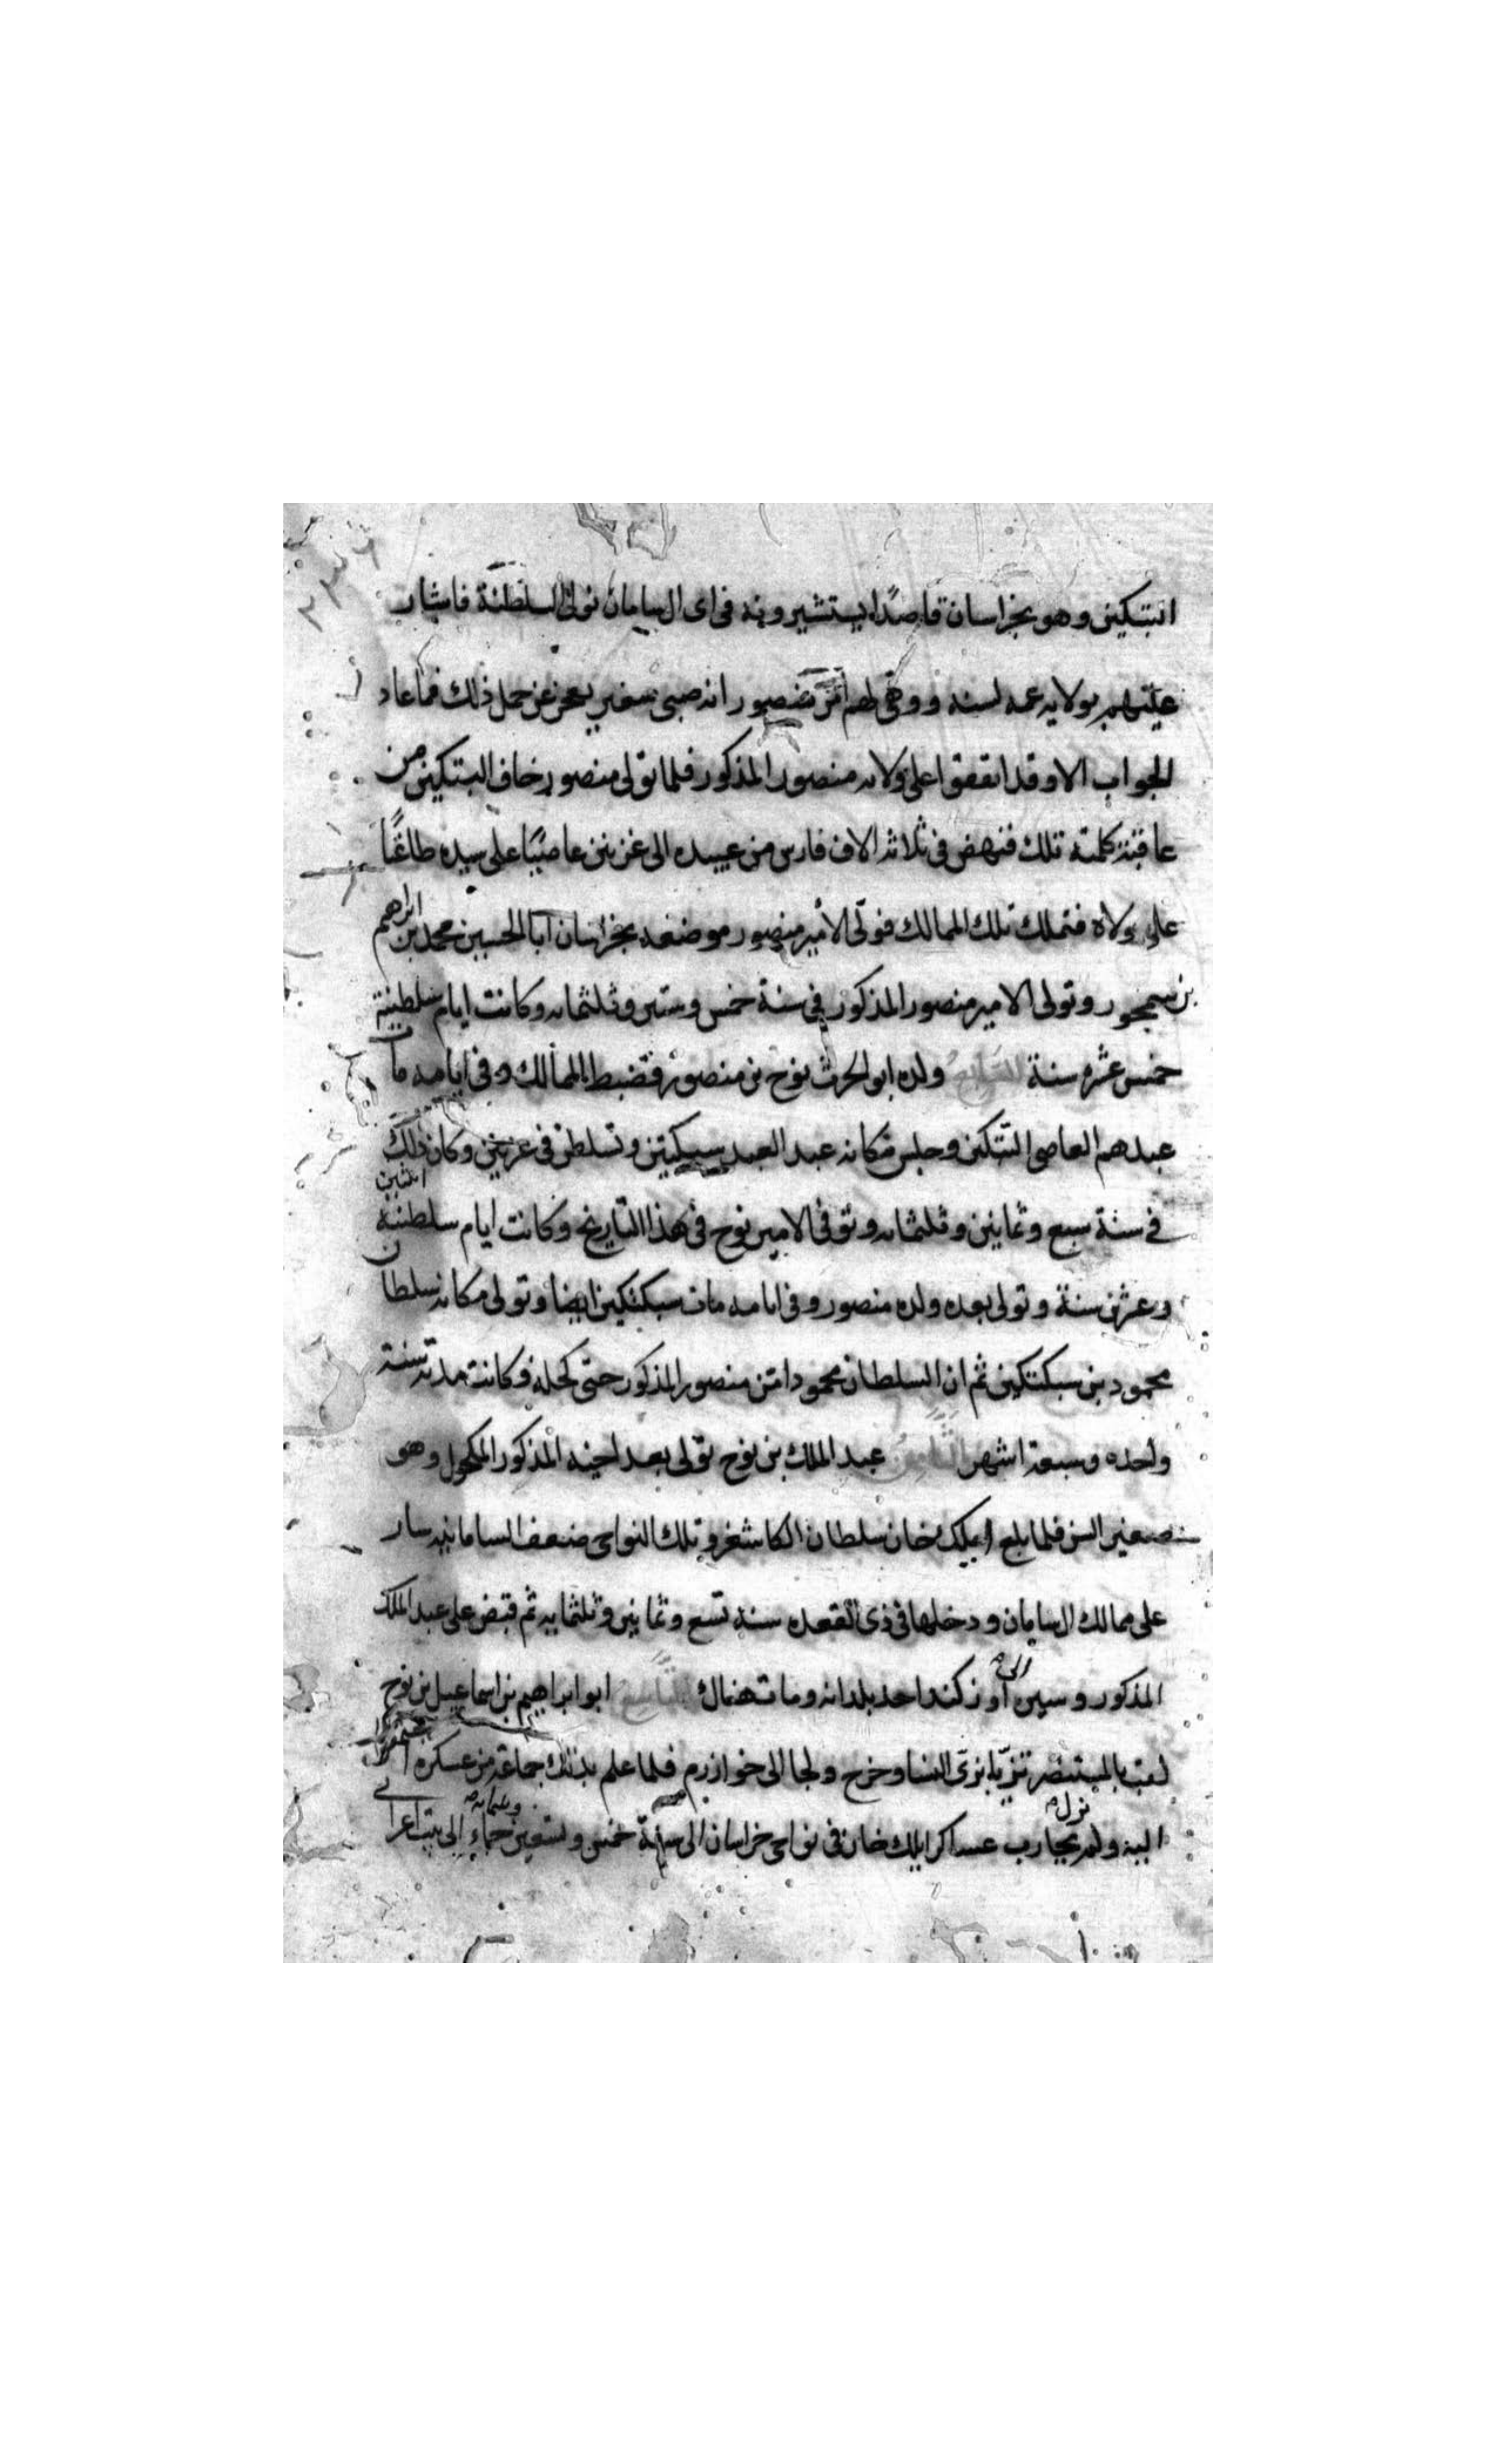 البتكين وهو بخراسان قاصدًا يستشيرونه فى اى ال سامان نولى السلطنة فاشار
عليهم بولاية عمه لسنه ووهى لهم امر منصور انه صبى صغير يعجز عن حمل ذلك فما عاد
الجواب الا وقد اتفقوا على ولاية منصور المذكور فلما تولى منصور خاف البتكين من
عاقبة كلمته تلك فنهض فى ثلاثة الاف فارس من عبيده الى غزنين عاصيًا على سيده طاغيًا
على ولاه فتملك تلك الممالك فولى الامير منصور موضعه بخراسان ابا الحسين محمد بن ابراهيم
بن سمجور وتولى الامير منصور المذكور فى سنة خمس وستين وثلثمايه وكانت ايام سلطنته
خمس عشره سنة السابع ولده ابو الحرث نوح بن منصور فضبط الممالك وفى ايامه مات
عبدهم العاصى البتكين وجلس مكانه عبد العبد سبكتكين وتسلطن فى غزنين وكان ذلك
فى سنة سبع وثمانين وثلثمايه وتوفى الامير نوح فى هذا التاريخ وكانت ايام سلطنته اثنين
وعشرين سنة وتولى بعده ولده منصور وفى ايامه مات سبكتكين ايضا وتولى مكانه سلطان
محمود بن سبكتكين ثم ان السلطان محمود امتن منصور المذكور حتى كحله وكانت مدته سنة
واحده وسبعة اشهر الثامن عبد الملك بن نوح تولى بعد اخيه المذكور المكحول وهو
صغير السن فلما بلغ ايلك خان سلطان الكاشغر وتلك النواحى ضعف السامانيه سار
على ممالك ال سامان ودخلها فى ذى القعده سنة تسع وثمانين وثلثمايه ثم قبض على عبد الملك
المذكور وسيره الى اوزكند احد بلدانه ومات هناك التاسع ابو ابراهيم بن اسماعيل بن نوح
لقب بالمستنصر تزيا بزى النسا وخرج ولجا الى خوارزم فلما علم بذلك جماعة من عسكره اجتمعوا
اليه ولم يزل يحارب عساكر ايلك خان فى نواحى خراسان الى سنة خمس وتسعين وثلثمايه جاء الى بيت اعرابى